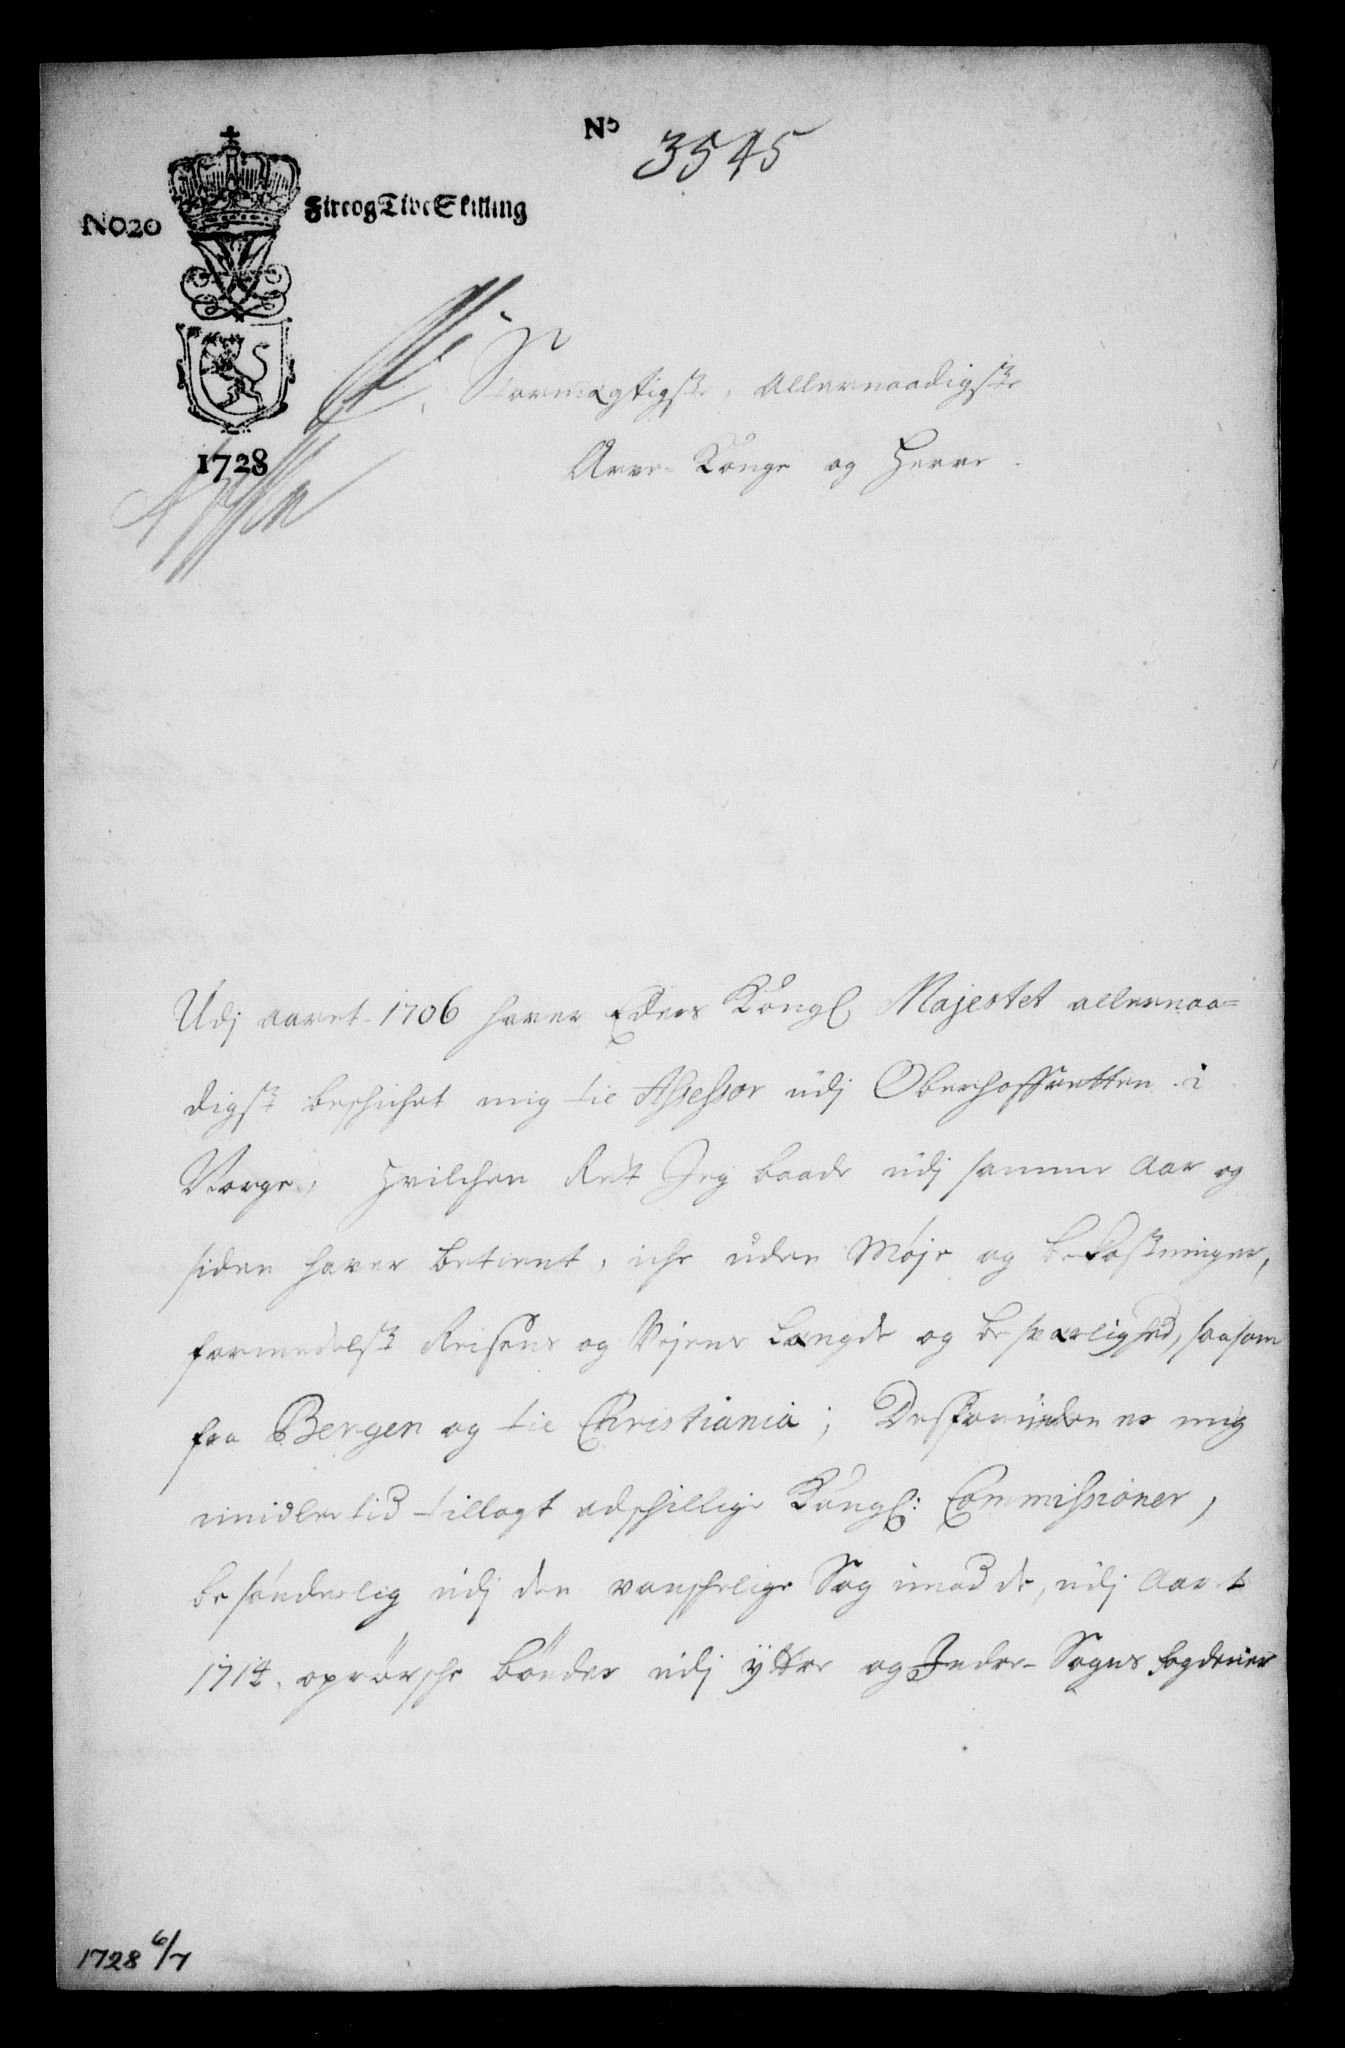 No
3545
No 20
Fire og Tive Skilling
1728
Stormægtigste, Allernaadigste
Arve-Konge og Herre.
Udj aaret 1706 haver Eders Kongl Majestet allernaa=
digst beschichet mig til Assessor udj Oberhoffretten i
Norge, Hvilchen Ret Jeg baade udj samme Aar og
siden haver betient, iche uden Møje og bekostninger,
formedelst Reisens og Vejens Længde og besværlighed, saasom
fra Bergen og til Christiania; Desforuden er mig
imidlertid tillagt adschillige Kongl: Commissioner,
besønderlig udj den vanschelige Sag imod de, udj Aaret
1714, oprørsche bønder udj yttre og Indre-Sogns fogderier
1728 6/7